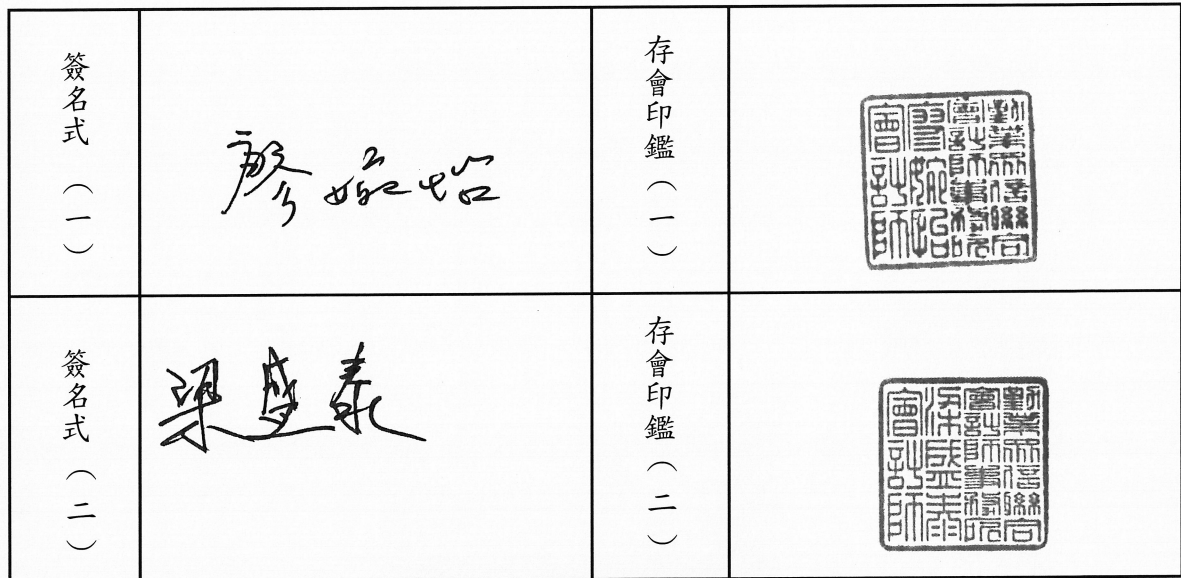 簽名式（一）
廖婉怡
存會印鑑（一）
勤業眾信聯合
會計師事務所
廖婉怡
會計師
簽名式（二）
梁盛泰
存會印鑑（二）
勤業眾信聯合
會計師事務所
梁盛泰
會計師